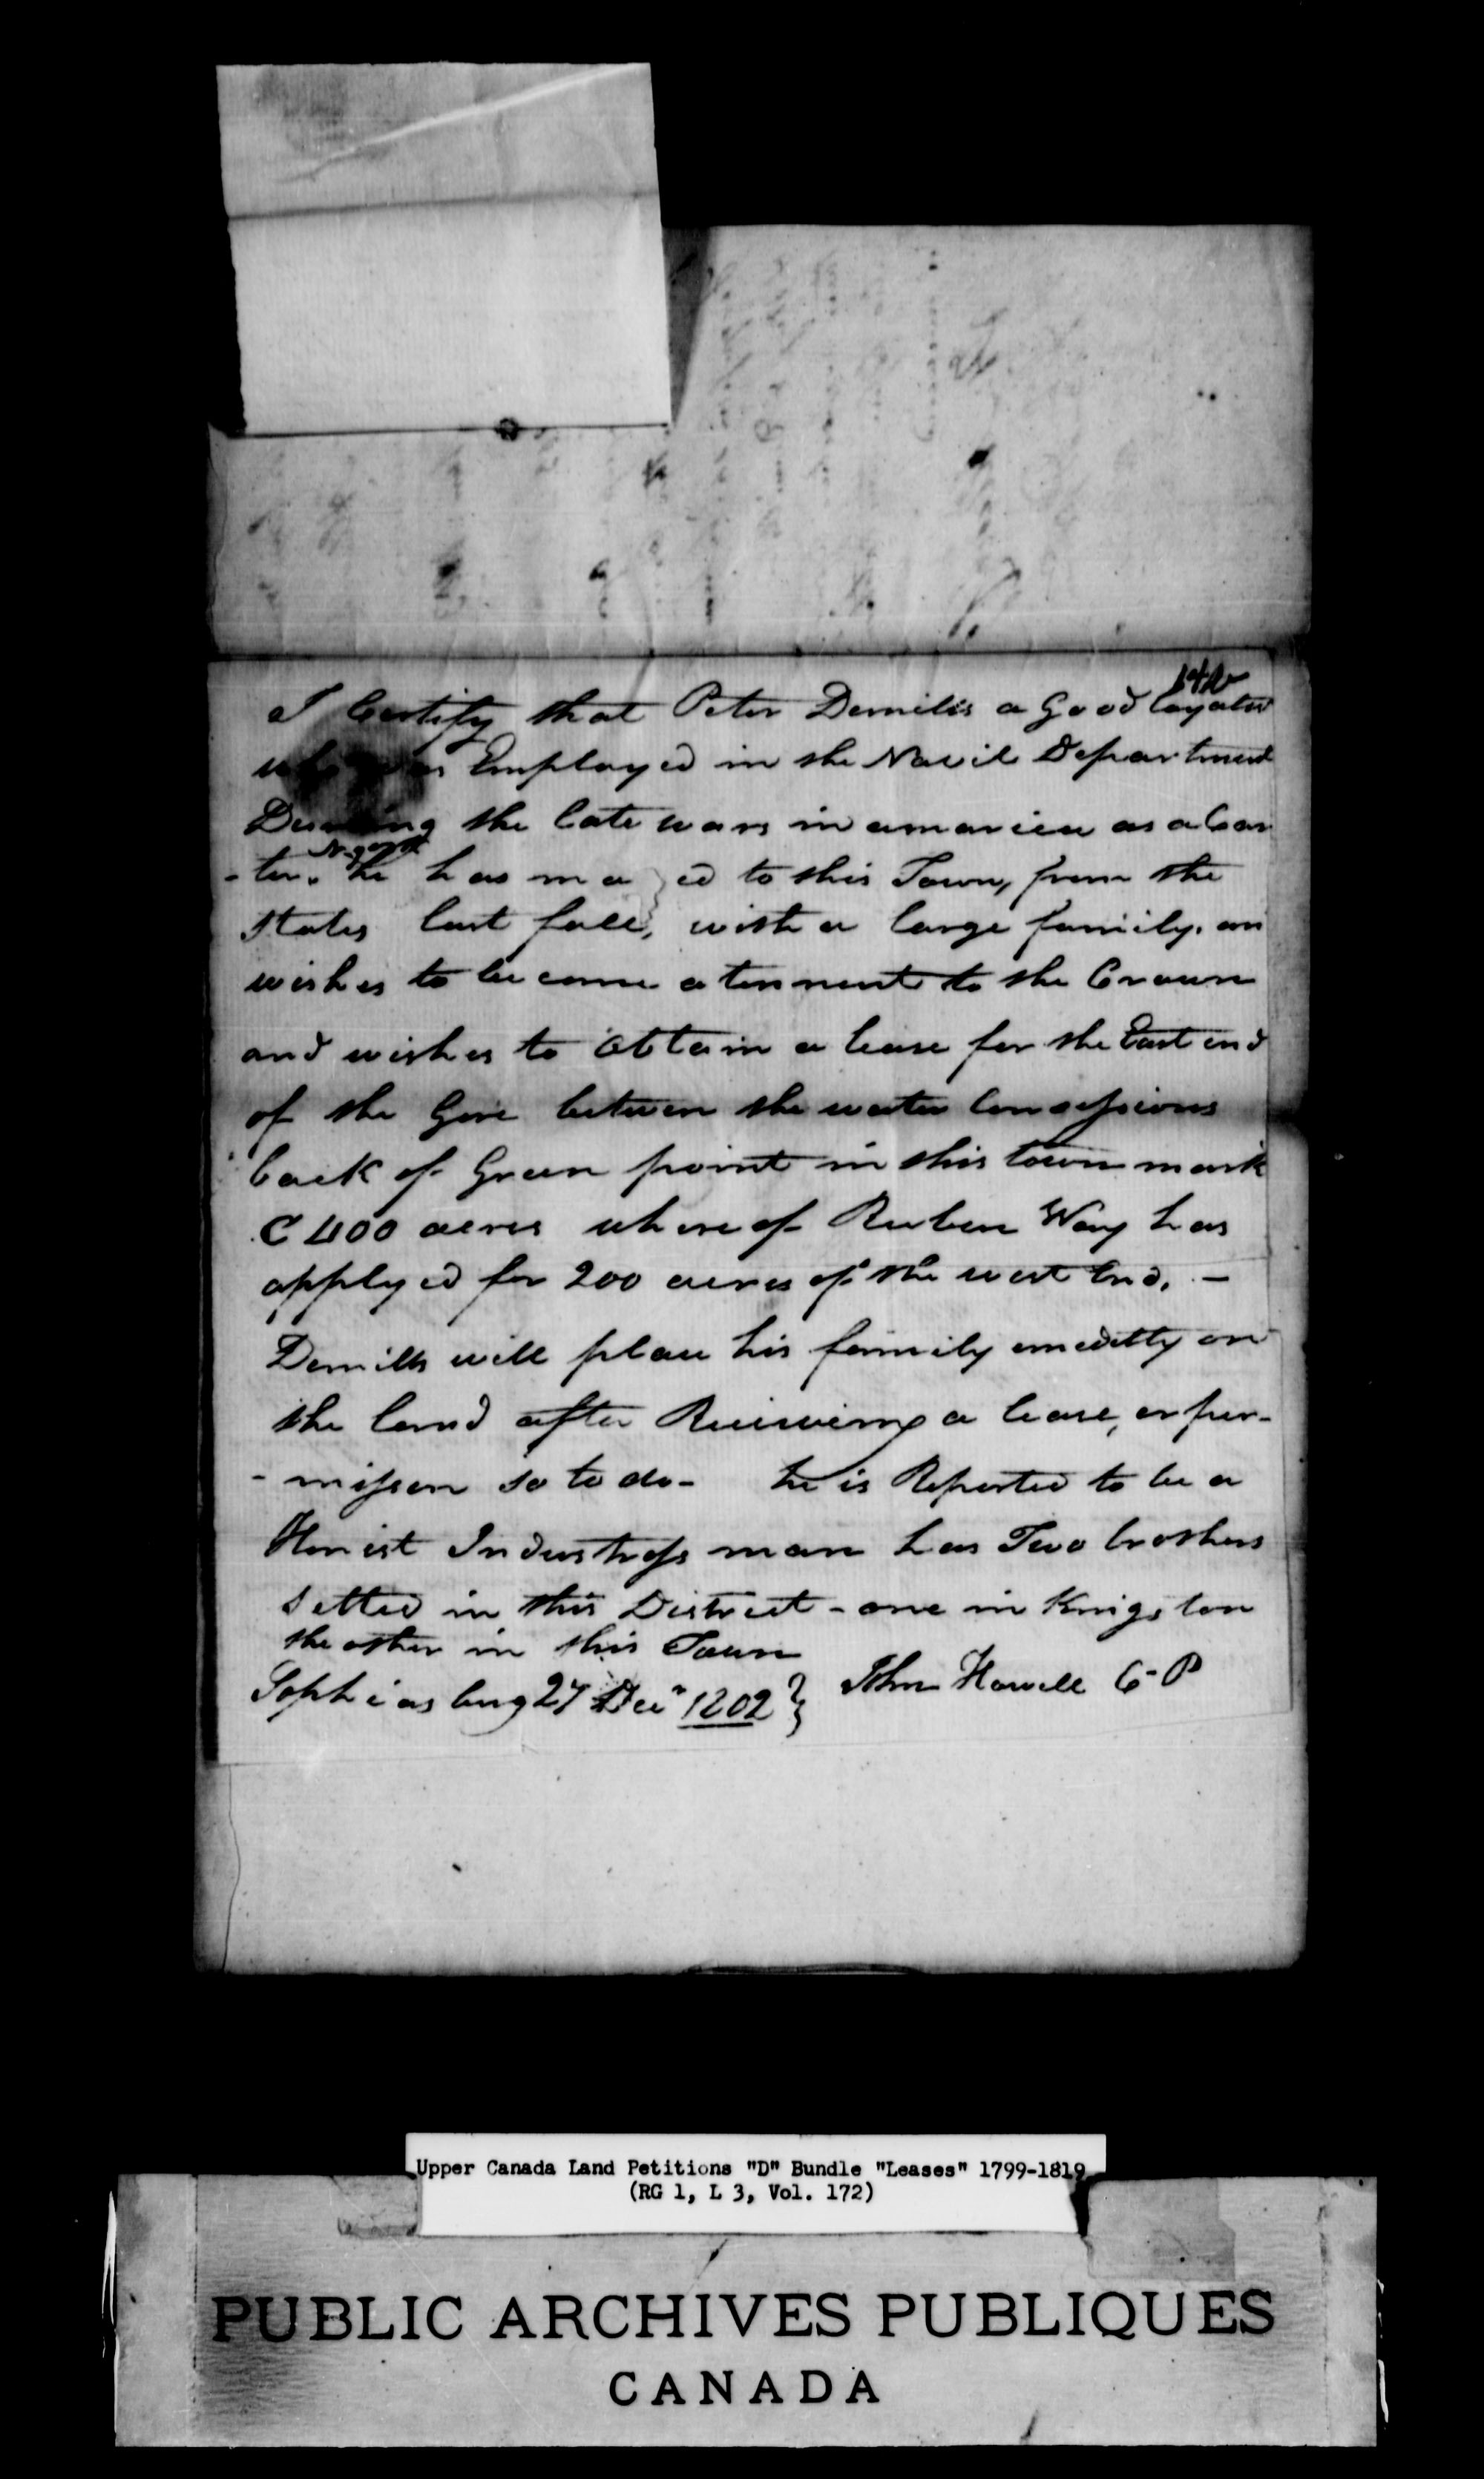 I Certify that Peter Demilis a Good loyalist
who was Employed in the Navil Department
Dureing the late wars in amarica as a Car
-ter. N-york he has m ed to this Town, from the
States last fall, with a large family. an
wishes to be come a tennent to the Crown
and wishes to obtain a lease for the East end
of the Gore between the water Concessions
back of Green point in this town mark
C 400 acres where of Reuben Way has
applyed for 200 acres of the west End. -
Demills will place his family emeditly on
the land after Reciveing a lease, or per-
-mission so to do - he is Reported to be a
Honist Industrass man has Two brothers
Setled in this District - one in Kingston
the other in this Town
Sophiasburg 27 Decr 1802 } John Howell C-P
Upper Canada Land Petitions "D" Bundle "Leases" 1799-1819
(RG 1, L 3, Vol. 172)
PUBLIC ARCHIVES PUBLIQUES
CANADA